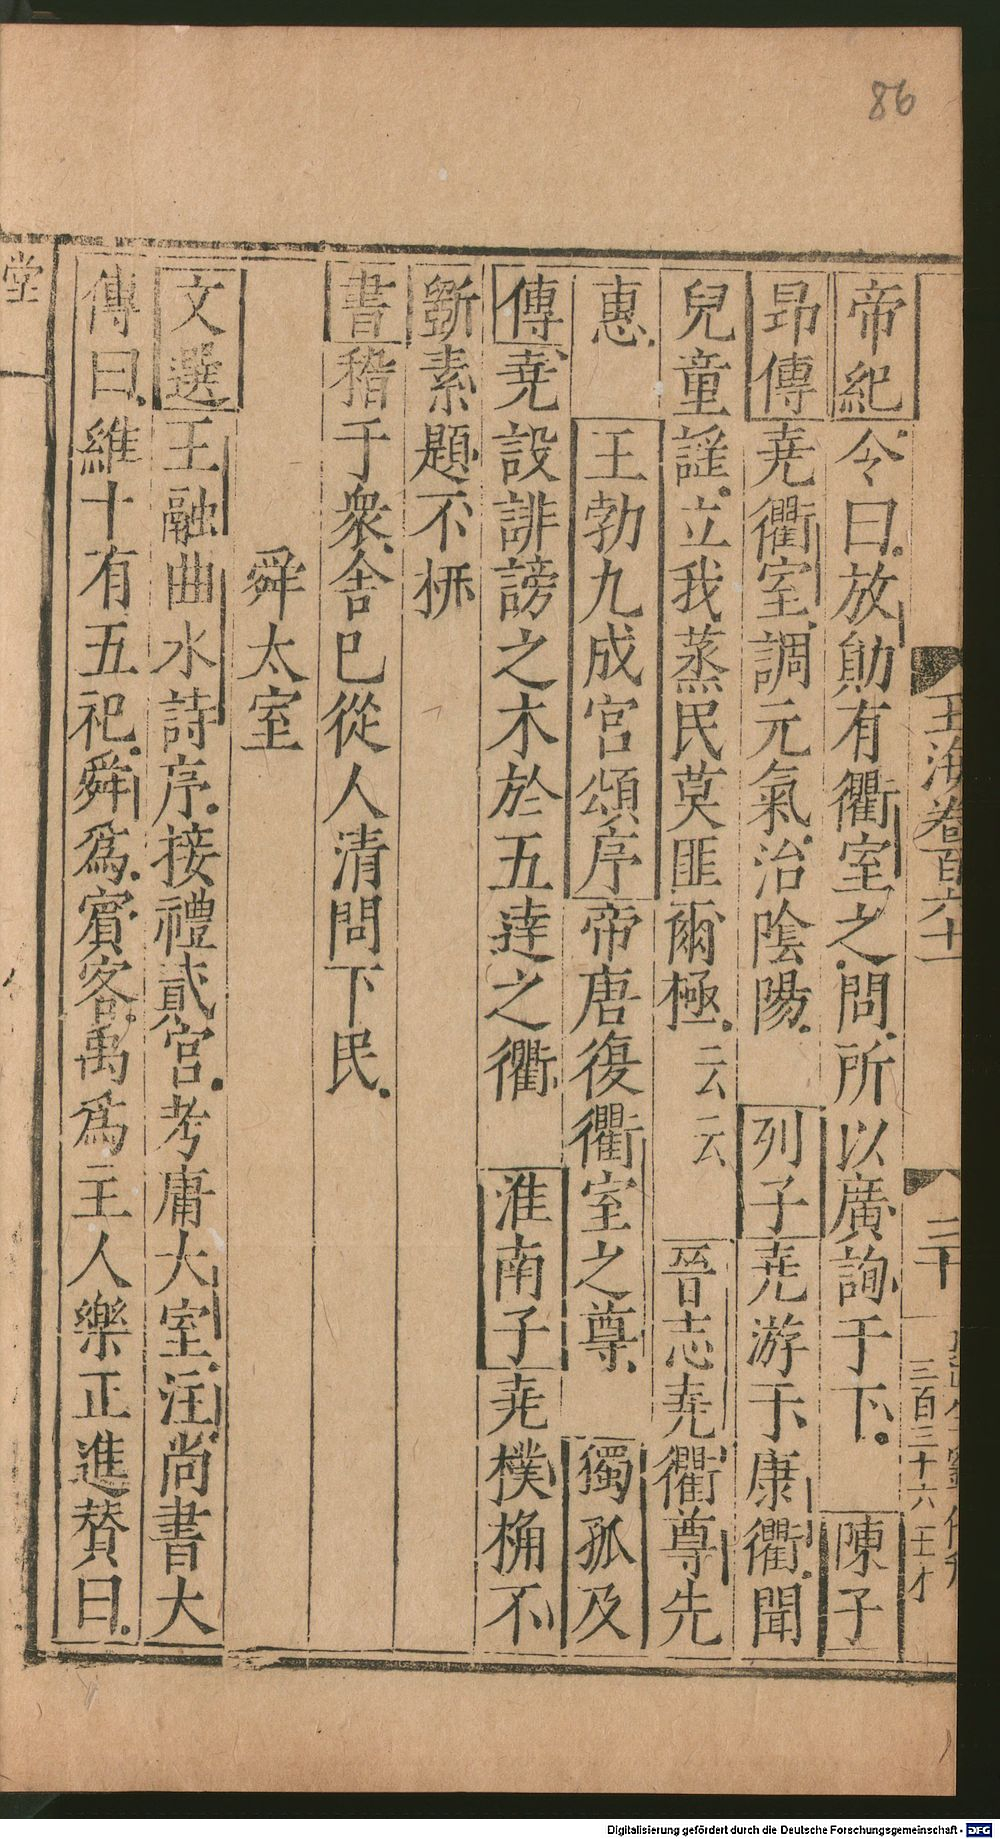 86
玉海卷百六十一
二十
三百三十六 王才
帝紀令曰放勛有衢室之問所以廣詢于下陳子
昂傳堯衢室調元氣治陰陽列子堯游于康衢聞
兒童謡立我蒸民莫匪爾極云云晉志堯衢尊先
惠王勃九成宮頌序帝唐復衢室之尊獨孤及
傳堯設誹謗之木於五達之衢淮南子堯樸桷不
斵素題不枅
書稽于衆舍已從人清問下民
舜太室
文選王融曲水詩序接禮貳宮考庸大室注尚書大
傳曰維十有五祀舜爲賓客禹爲主人樂正進賛曰
堂
Digitalisierung gefördert durch die Deutsche Forschungsgemeinschaft - DFG